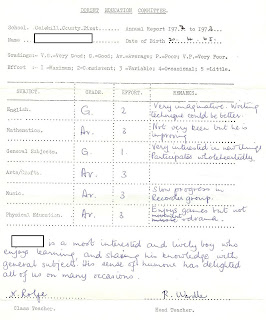 DORSET EDUCATION COMMITTEE.
School. Colehill County First Annual Report 197 to 197
Name .. Date of Birth 30. 4.
Grading:- V.G.=Very Good; G.=Good; Av.=Average; P.=Poor; V.P.=Very Poor.
Effort :- 1 =Maximum; 2=Consistent; 3 =Variable; 4=Occasional; 5 =Little.
SUBJECT. GRADE. EFFORT. REMARKS.
English. G. 2 Very imaginative. Writing
technique could be better.
Mathematics. Av. 3 Not very keen but he is
improving
General Subjects. G. 1 Very interested in everything
Participates wholeheartedly.
Arts/Crafts. Av. 3
Music. Av. 3 Slow progress in
Recorder group.
Physical Education. Av. 3 Enjoys games but not
drama.
is a most interested and lively boy who
enjoys learning, and sharing his knowledge with
general subjects. His sense of humour has delighted
all of us on many occasions.
Class Teacher. Head Teacher.